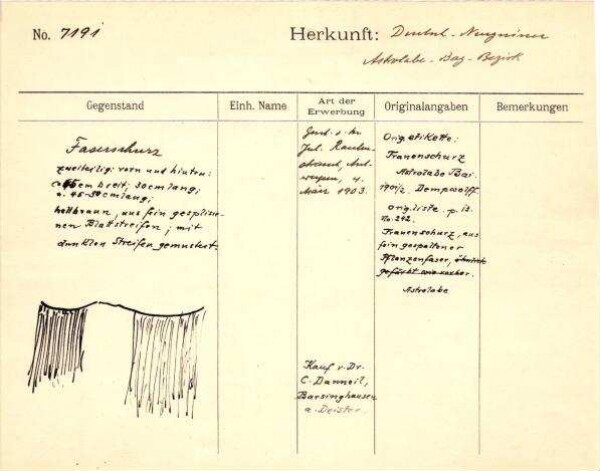 No. 7191
Herkunft: Deutsch-Neuguinea
Astrolabe-Bay-Bezirk
Gegenstand
Einh. Name
Art der Erwerbung
Originalangaben
Bemerkungen
Faserschurz
zweiteilig: vorn und hinten:
breit; 30cm lang;
45-50cm lang;
hellbraun, aus fein gesplisse-
nen Blattstreifen; mit
dunklen Streifen gemustert.
Jul.
4.
März 1903.
Kauf v. Dr.
C. Danneil,
Barsinghausen
a. Deister.
Orig. etikette:
Frauenschurz
Astrolabe Bai.
1901/2. Dempwolff
orig. liste. p. 13.
No. 242.
Frauenschurz, aus
fein gespaltener
Pflanzenfaser, ähnlich
gefärbt wie vorher.
Astrolabe